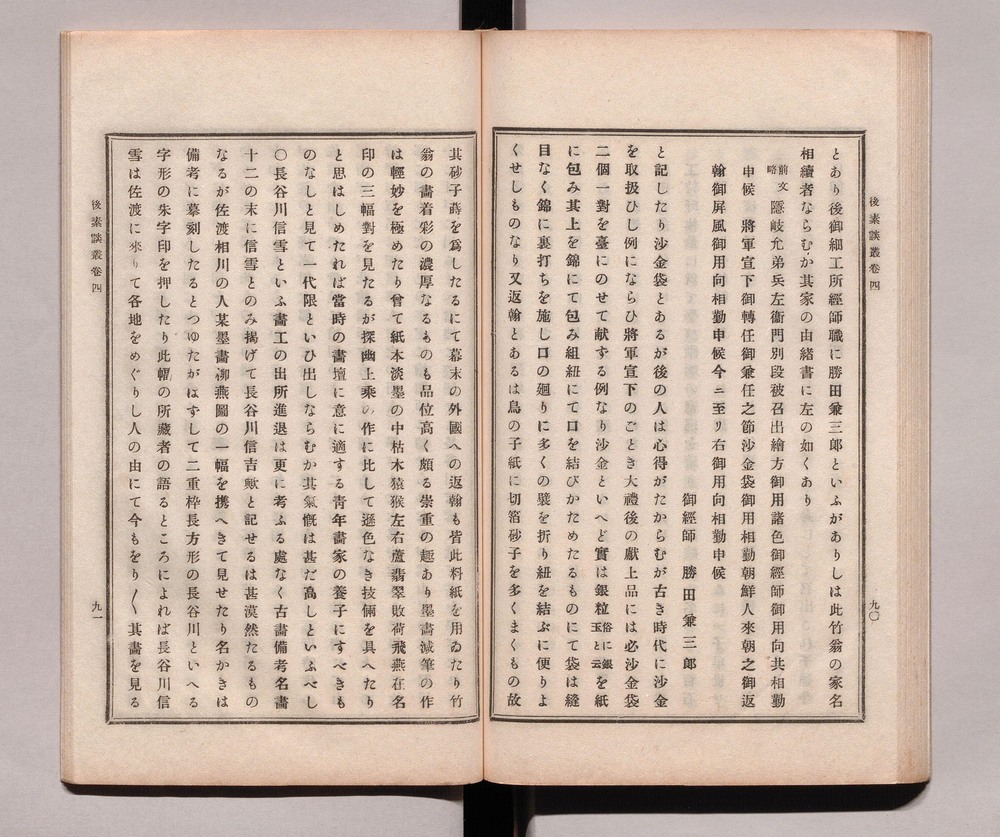 後素談叢卷四
九〇
とあり後御細工所經師職に勝田兼三郎といふがありしは此竹翁の家名
相續者ならむか其家の由緒書に左の如くあり
前文略 隱岐允弟兵左衞門別段被召出繪方御用諸色御經師御用向共相勤
申候 將軍宣下御轉任御兼任之節沙金袋御用相勤朝鮮人來朝之御返
翰御屏風御用向相勤申候今ニ至リ右御用向相勤申候
御經師 勝田兼三郎
と記したり沙金袋とあるが後の人は心得がたからむが古き時代に沙金
を取扱ひし例にならひ將軍宣下のごとき大禮後の獻上品には必沙金袋
二個一對を臺にのせて献する例なり沙金といへど實は銀粒俗に銀玉と云を紙
に包み其上を錦にて包み組紐にて口を結びかためたるものにて袋は縫
目なく錦に裏打ちを施し口の廻りに多くの襞を折り紐を結ぶに便りよ
くせしものなり又返翰とあるは鳥の子紙に切箔砂子を多くまくもの故
其砂子蒔を爲したるにて幕末の外國への返翰も皆此料紙を用ゐたり竹
翁の畵着彩の濃厚なるものも品位高く頗る崇重の趣あり墨畵减筆の作
は輕妙を極めたり曾て紙本淡墨の中枯木猿猴左右蘆翡翠敗荷飛燕在名
印の三幅對を見たるが探幽上乘の作に比して遜色なき技倆を具へたり
と思はしめたれば當時の書壇に意に適する青年畵家の養子にすべきも
のなしと見て一代限といひ出しならむか其氣慨は甚だ高しといふべし
〇長谷川信雪といふ畵工の出所進退は更に考ふる處なく古畵備考名畵
十二の末に信雪とのみ揭げて長谷川信吉歟と記せるは甚漠然たるもの
なるが佐渡相川の人某墨畵柳燕圖の一幅を携へきて見せたり名かきは
備考に摹刻したるとつゆたがはずして二重枠長方形の長谷川といへる
字形の朱字印を押したり此幅の所藏者の語るところによれば長谷川信
雪は佐渡に來りて各地をめぐりし人の由にて今もをり〱其畵を見る
後素談叢卷四
九一